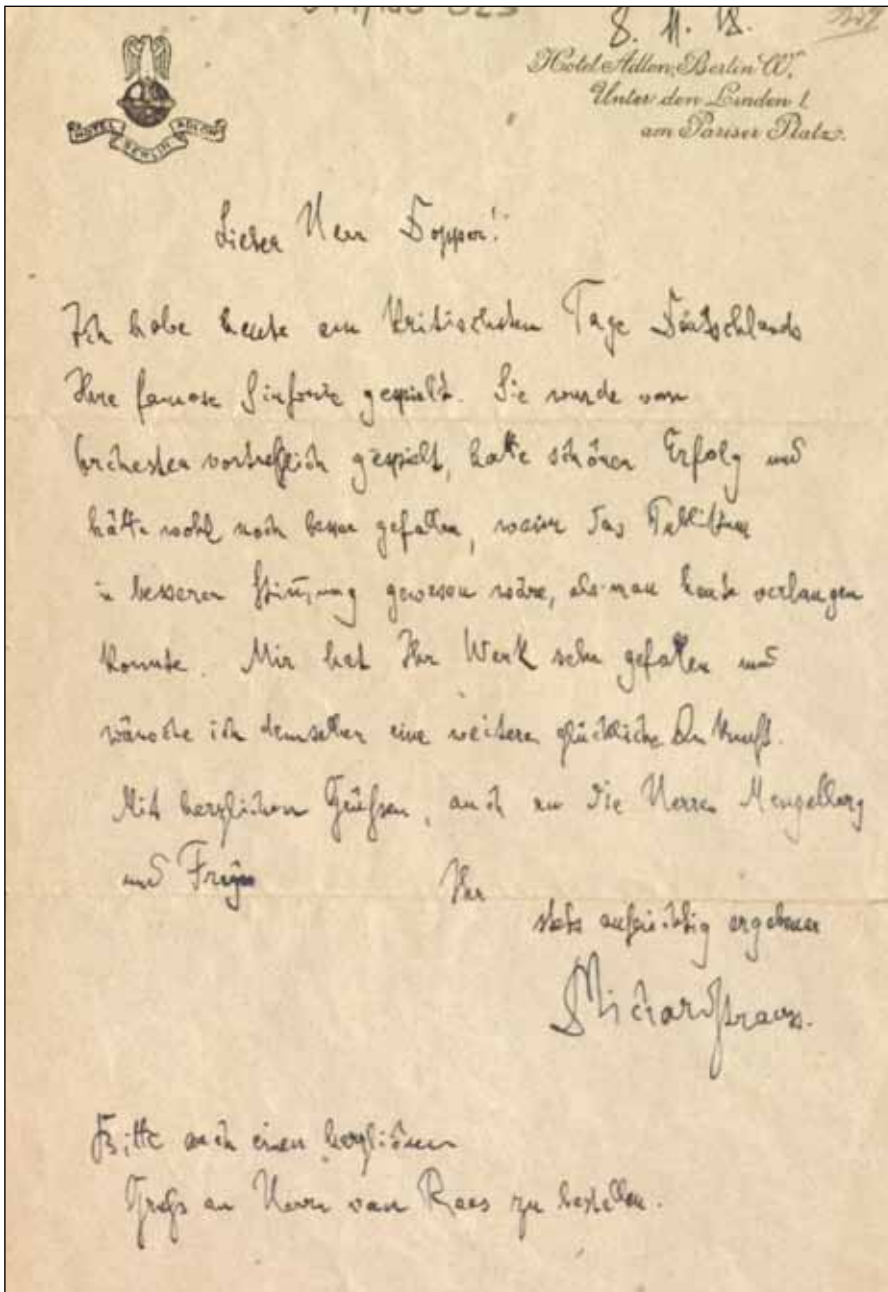 8. 11. 18.
Hotel Adlon, Berlin W.
Unter den Linden 1
am Pariser Platz.
HOTEL ADLON
BERLIN
Lieber Herr Dopper!
Ich habe heute am kritischsten Tage Deutschlands
Ihre famose Sinfonie gespielt. Sie wurde vom
Orchester vortrefflich gespielt, hatte schönen Erfolg und
hätte wohl noch besser gefallen, wenn das Publikum
in besserer Stimmung gewesen wäre, als man heute verlangen
konnte. Mir hat Ihr Werk sehr gefallen und
wünsche ich demselben eine weitere glückliche Zukunft.
Mit herzlichen Grüßen, auch an die Herren Mengelberg
und
Ihr
stets aufrichtig ergebener
Richard Strauss.
Bitte auch einen herzlichen
Gruß an Herrn van Rees zu bestellen.